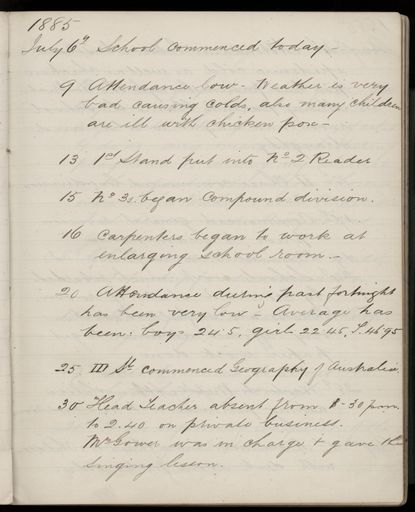 1885
July 6th School commenced today -
9 Attendance low - Weather is very
bad causing colds, also many children
are ill with chicken pox -
13 1st Stand put into No 2 Reader
15 No 3s began Compound division.
16 Carpenters began to work at
enlarging school room. -
20 Attendance during past fortnight
has been very low - Average has
been: boys 24.5, girls 22.45, T. 46.95
25 III St. commenced Geography of Australia
30 Head Teacher absent from 1-30 p.m.
to 2.40 on private business.
Mr Gower was in charge + gave the
singing lesson.